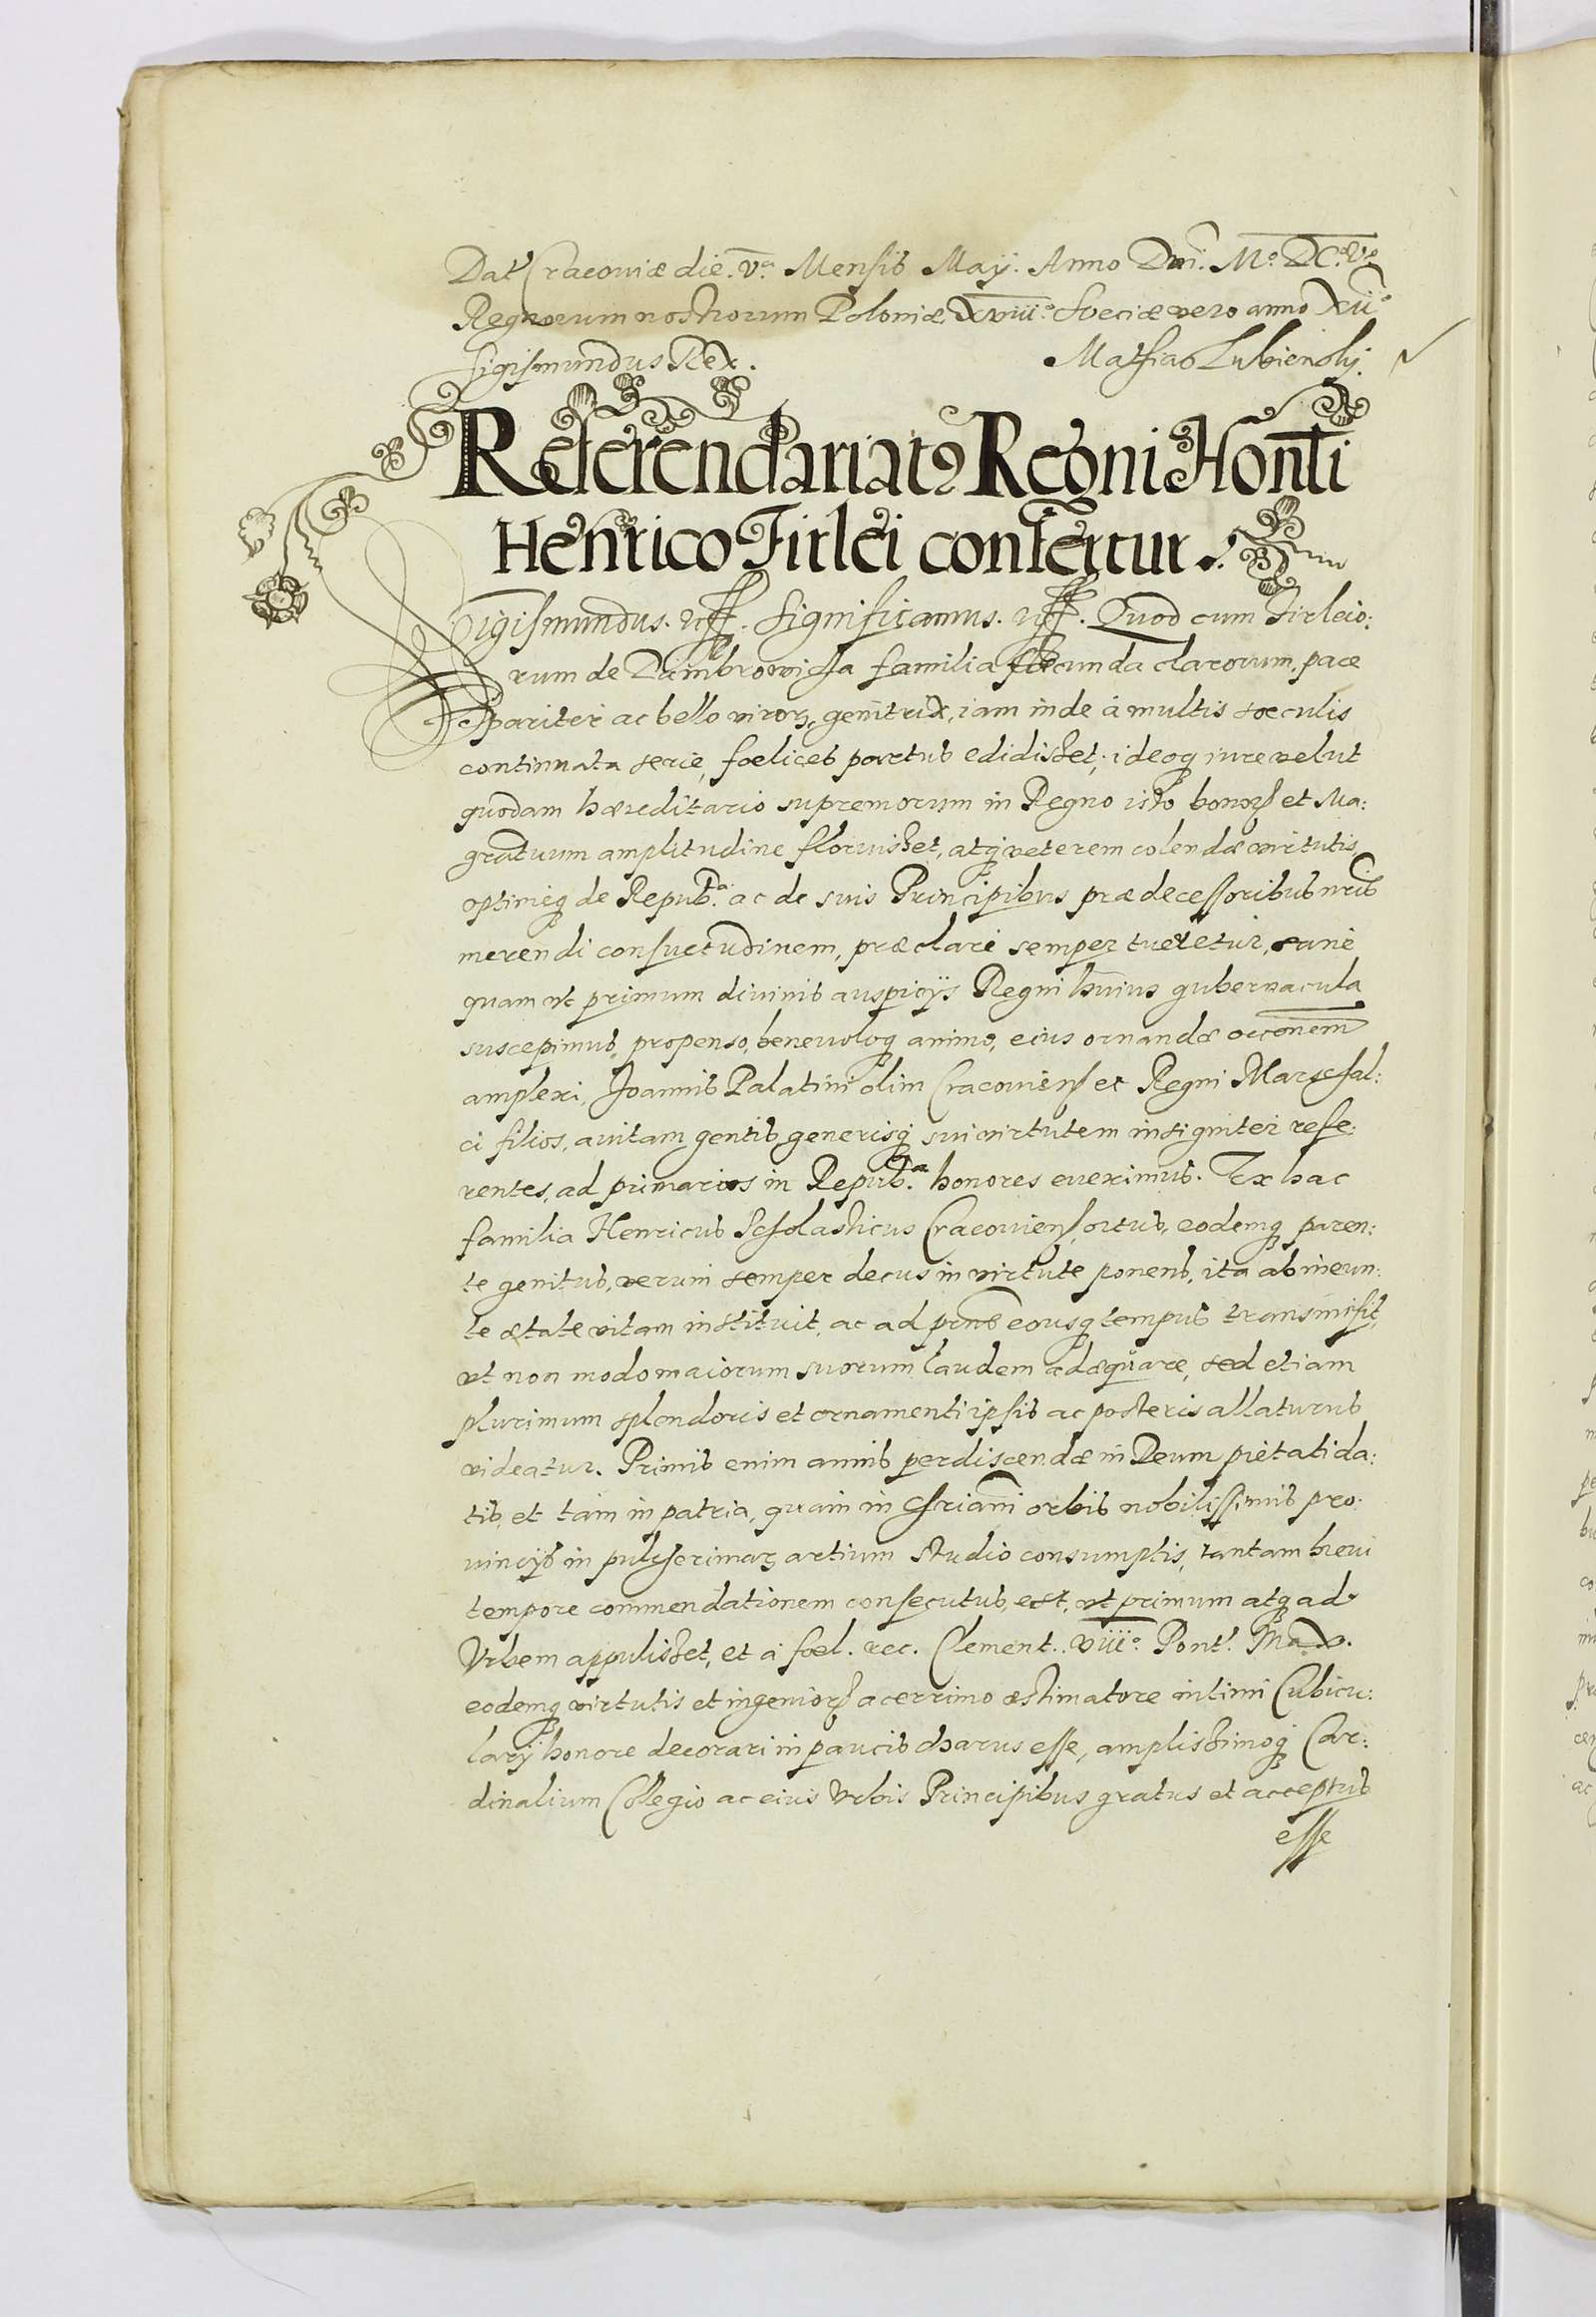 Dat Cracoviæ die. Vª. Mensis Maÿ. Anno Dni. Mº. DCº. Vº
Regnorum nostrorum Poloniæ XVIIIº. Sveciæ vero anno XIIº
Sigismundus Rex. Mathias Lubiensky.
Referendariatꝰ Regni Honti
Henrico Firlei confertur.
Sigismundus. Significamus. Quod cum Firleio:
rum de Dambrowicza familia foecunda clarorum, pace
pariter ac bello virorꝝ, genitrix, iam inde á multis soeculis
continuata serie, foelices partus edidisset; ideoq iure velut
quodam hæreditario supremorum in Regno isto honorꝝ et Ma:
gratuum amplitudine floruisset, atq veterem colendæ virtutis
optimeq de Repub.ª ac de suis Principibus prædecessoribus nris
merendi consuetudinem, præclare semper tueretur, sane
quam ut primum divinis auspicÿs Regni huius gubernacula
suscepimus, propenso, benevoloq animo, eius ornandæ occonem
amplexi, Joannis Palatini olim Cracovien et Regni Marschal:
ci filios, avitam gentis generisq sui virtutem insigniter refe:
rentes, ad primarios in Repub.ª honores eveximus. Ex hac
familia Henricus Scholasticus Cracovien, ortus, eodemq paren:
te genitus, verum semper decus in virtute ponens, ita ab ineun:
te ætate vitam instituit, ac ad prns eousq tempus transmisit,
ut non modo maiorum suorum laudem adæquare, sed etiam
plurimum splendoris et ornamenti ipsis ac posteris allaturus
videatur. Primis enim annis perdiscendæ in Deum pietati da:
tis, et tam in patria, quam in Chriani orbis nobilissimis pro:
vincÿs in pulcherimaꝝ artium studio consumptis, tantam brevi
tempore commendationem consecutus, est, ut primum atq ad
Urbem appulisset, et á foel. rec. Clement. VIIIº. Pont. Max.
eodemq virtutis et ingeniorꝝ acerrimo æstimatore intimi Cubicu:
larÿ honore decorari in paucis charus esse, amplissimoq Car:
dinalium Collegio ac eius Urbis Principibus gratus et acceptus
esse